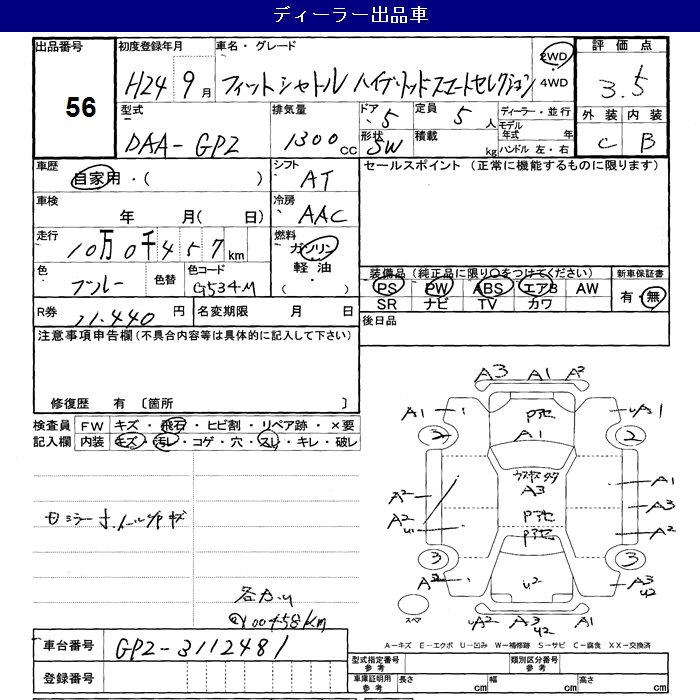 ディーラー出品車
出品番号 初度登録年月 車名・グレード 2WD・4WD 評価点
56 H24年9月 フィットシャトル ハイブリッドスマートセレクション 3.5
型式 排気量 ドア・形状 定員 積載 ディーラー・並行 外装 内装
DAA-GP2 1300cc 5 SW 5人 kg モデル年式 年 ハンドル 左・右 C B
車歴 自家用・( ) シフト AT セールスポイント (正常に機能するものに限ります)
車検 年 月( 日) 冷房 AAC
走行 10万0千457km 燃料 ガソリン 軽油・( )
色 ブルー 色替 色コード G534M
装備品(純正品に限り○をつけてください) 新車保証書
PS PW ABS エアB AW 有・無
SR ナビ TV カワ
R券 11,440円 名変期限 月 日 後日品
注意事項申告欄(不具合内容等は具体的に記入して下さい)
修復歴 有 〔箇所 〕
検査員 FW キズ・飛石・ヒビ割・リペア跡・×要
記入欄 内装 キズ・汚レ・コゲ・穴・スレ・キレ・破レ
A3 A1 A2
A1 Pアセ uA1
2 A1 2
ウスヤケタタ A1
A2 A3 A3
A2 u1 Pアセ A2
Pアセ
3 3
A2 u2 A3 u2
スペア uA2 A3 u2 A1
100458km
A-キズ E-エクボ U-凹み W-補修跡 S-サビ C-腐食 XX-交換済
車台番号 GP2-3112481
登録番号
型式指定番号 参考 類別区分番号 参考
車庫証明用 参考 長さ cm 幅 cm 高さ cm